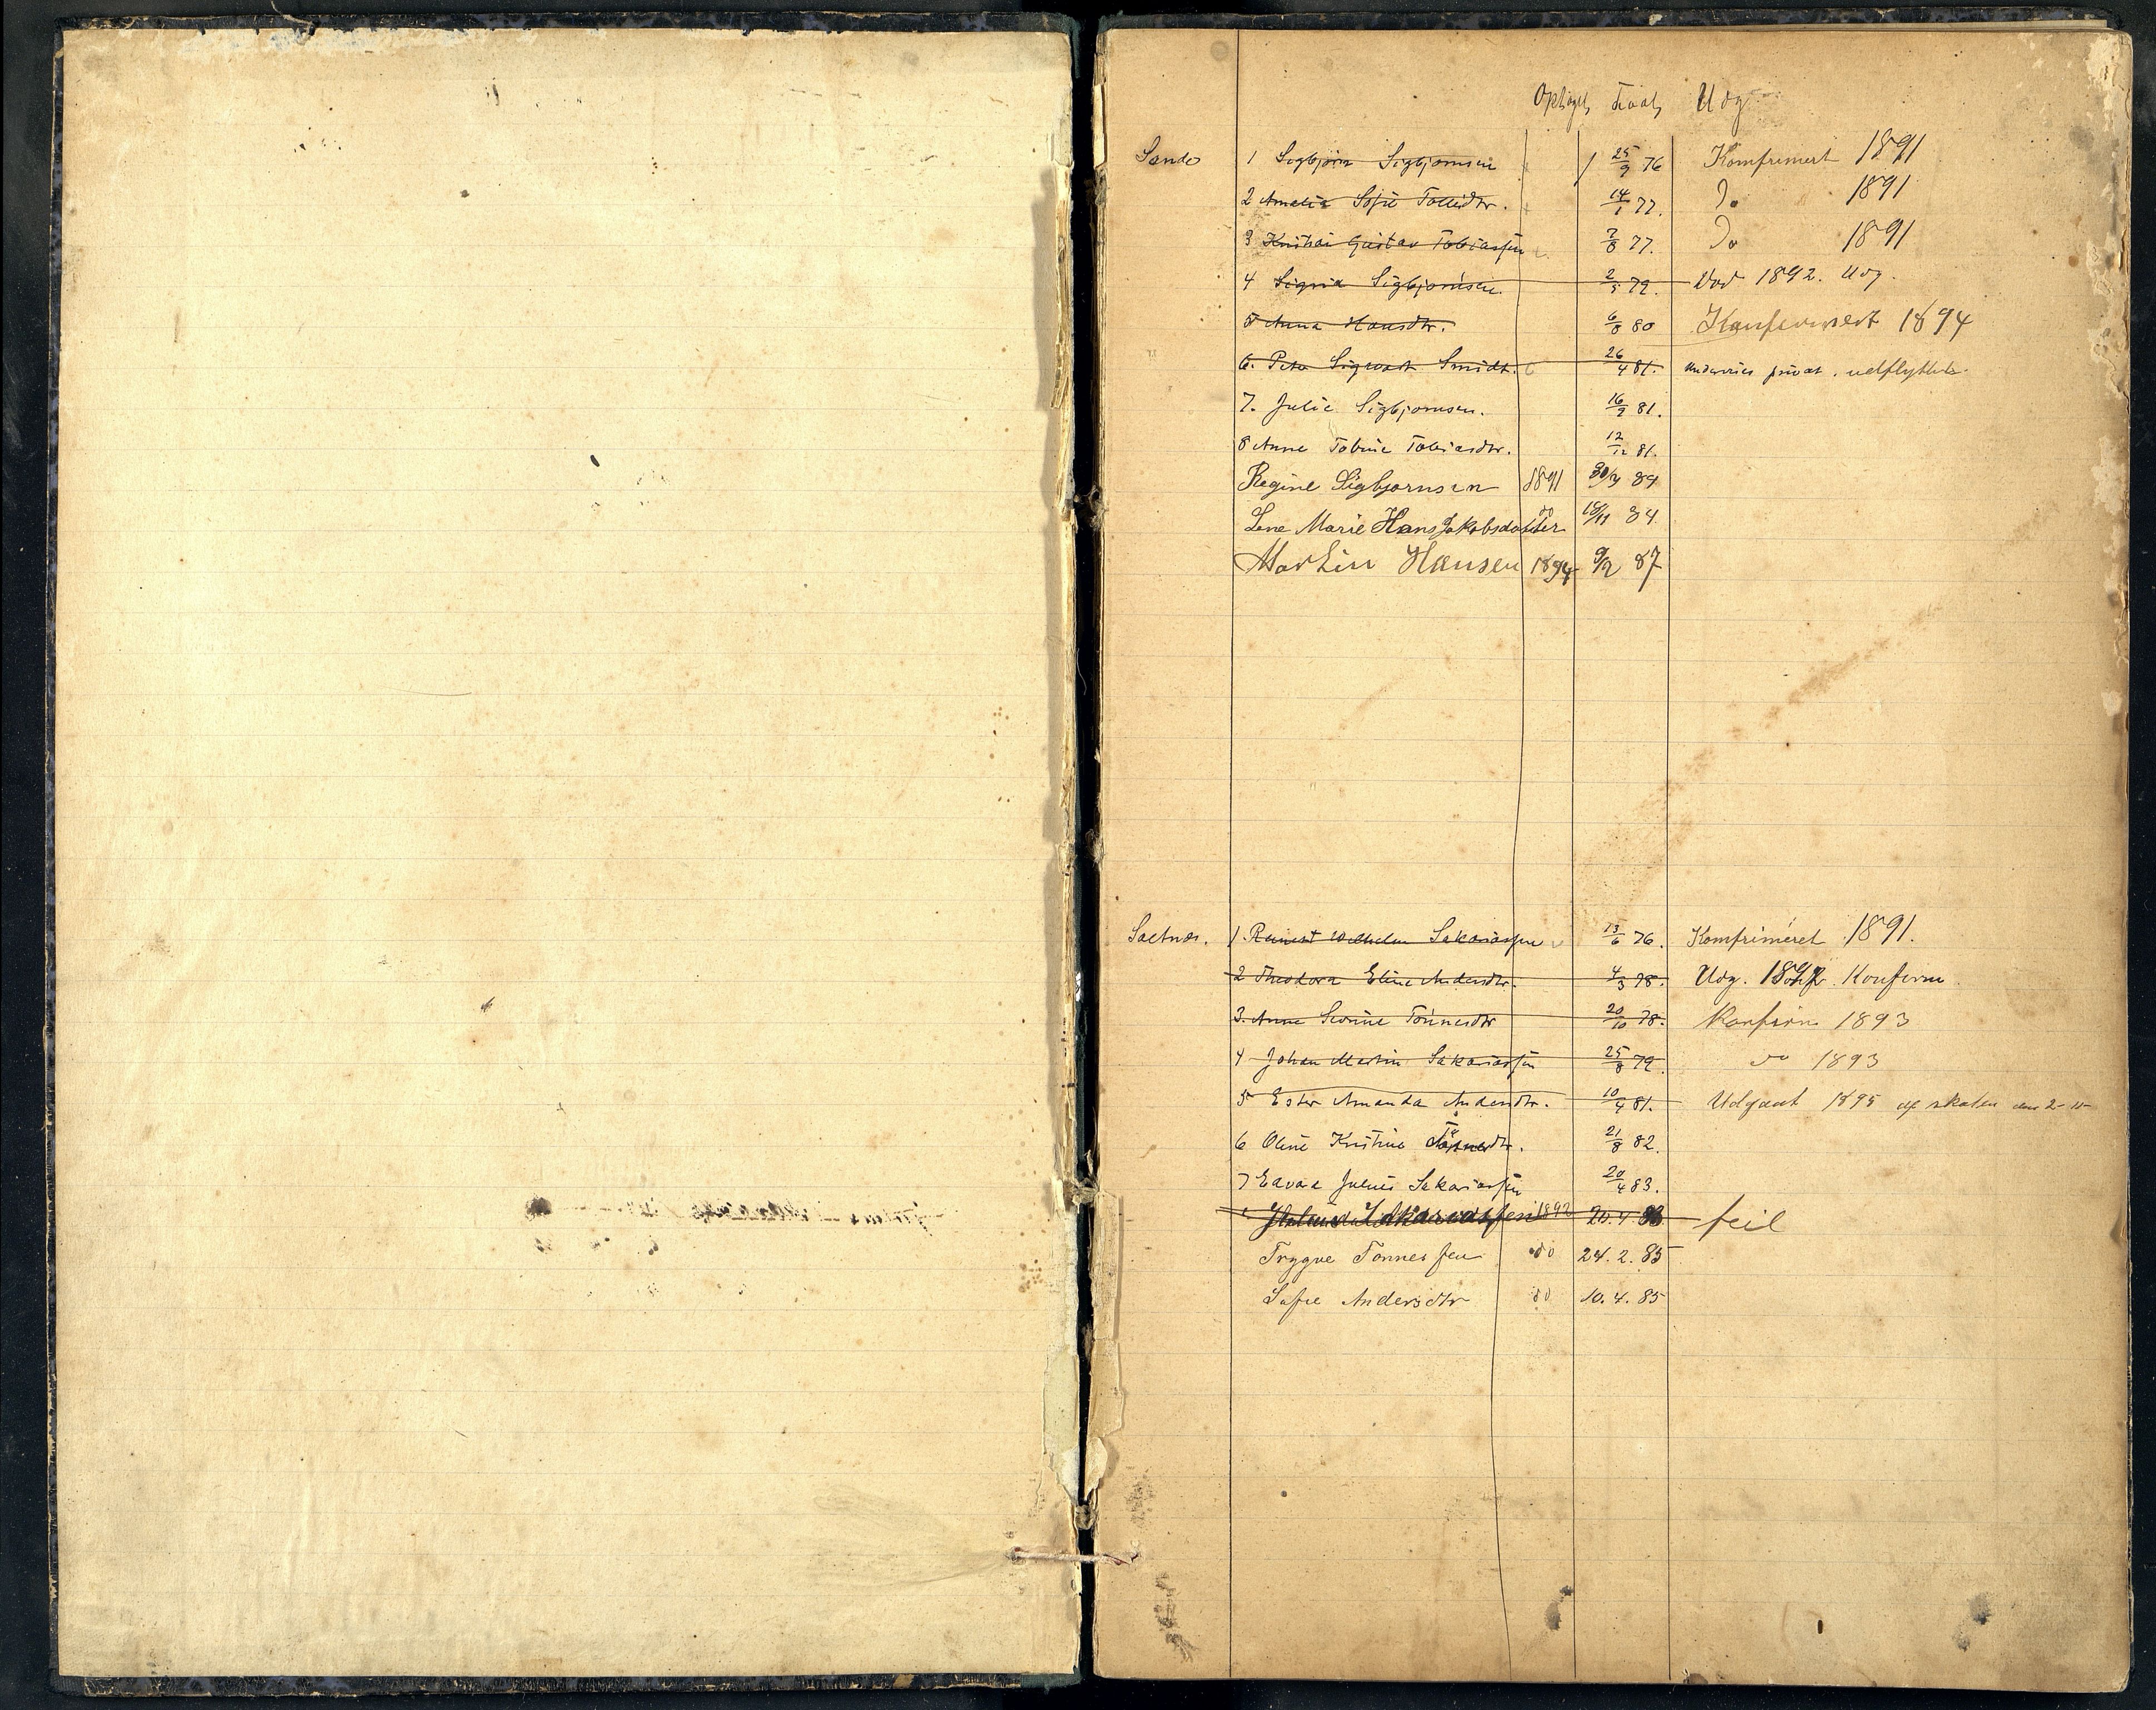 Optaget, Født, Udg
Sando 1 Sigbjørn Sigbjørnsen 25/9 76 Komfirmert 1891
2 Amalia Sofie Tollidtr. 14/1 77. Do 1891
3 Kristian Gustav Tobiassen 7/8 77. Do 1891
4 Sigrid Sigbjørnsen 2/5 79. Død 1892. Udg.
5 Anna Hansdtr. 6/8 80 Konfirmert 1894
6. Peter Sigvart Smidt. 26/4 81. privat. udflyttet
7. Julie Sigbjørnsen. 16/9 81.
8 Anne Tobine Tobiasdtr. 12/12 81.
Regine Sigbjørnsen 1891 84
Lene Marie Hans Jakobsdatter do 18/11 84
Martin Hansen 1894 9/2 87
Saltnes. 1. Wilhelm Sakariassen 13/6 76. Komfirmeret 1891.
2 Theodora Eline Andersdtr. 4/3 78. Udg. Konfirm
3. Anne Tønnesdtr 20/10 78. Konfirm 1893
4 Johan Martin Sakariassen 25/8 79. do 1893
5 Ester Amanda Andersdtr. 10/4 81. Udgaat 1895 af skolen
6 Oline Kristine 21/8 82.
7 Edvard Julius Sakariassen 20/4 83.
Sakariassen 1892 20.4.83 feil
Trygve Tønnessen do 24.2.85
Sofie Andersdtr do 10.4.85